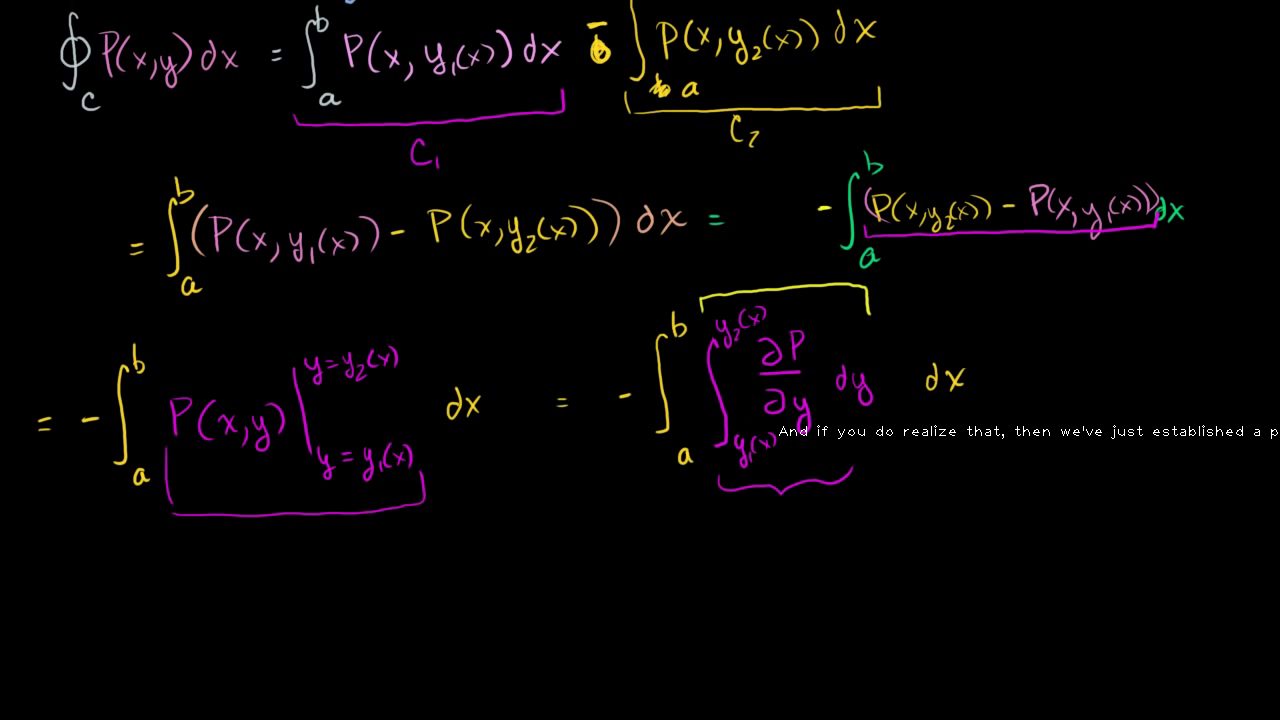 ∮_C P(x,y) dx = ∫_a^b P(x, y₁(x)) dx - ∫_a P(x, y₂(x)) dx
C₁ C₂
= ∫_a^b (P(x, y₁(x)) - P(x, y₂(x))) dx = - ∫_a^b (P(x, y₂(x)) - P(x, y₁(x))) dx
= - ∫_a^b P(x,y) |_{y = y₁(x)}^{y = y₂(x)} dx = - ∫_a^b ∫_{y₁(x)}^{y₂(x)} ∂P/∂y dy dx
And if you do realize that, then we've just established a p